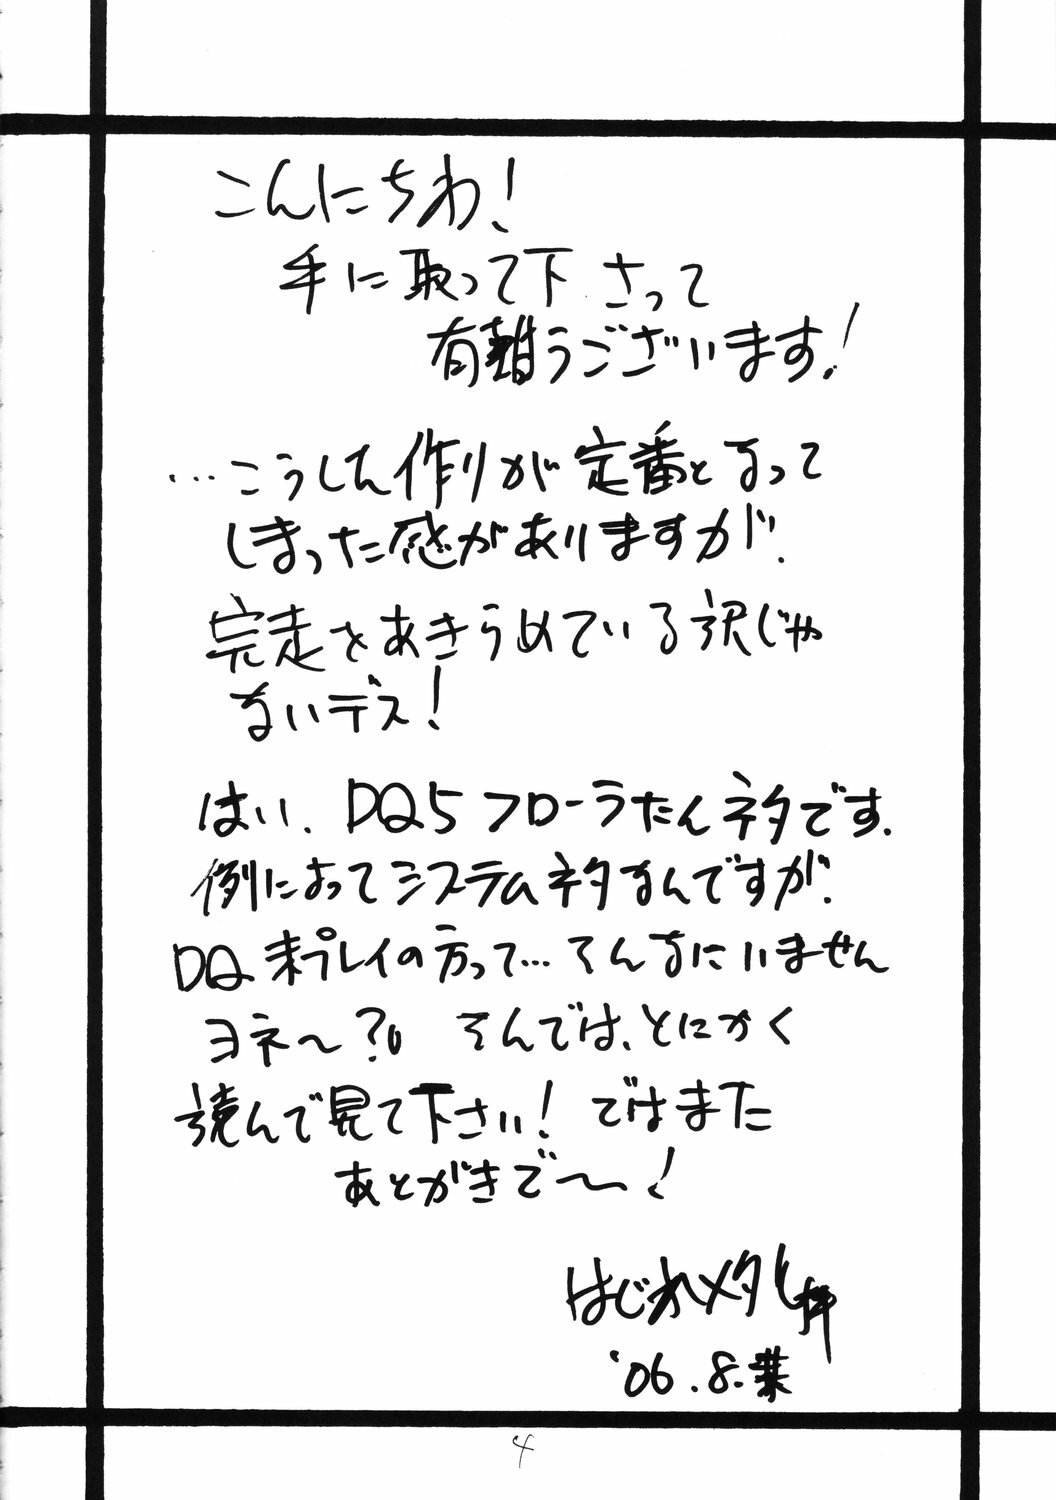 こんにちわ!
手に取って下さって
有難うございます!
…こうした作りが定番となって
しまった感がありますが、
完走をあきらめている訳じゃ
ないデス!
はい、DQ5フローラたんネタです。
例によってシステムネタなんですが、
DQ未プレイの方って…そんなにいません
ヨネ〜?。そんでは、とにかく
読んで見て下さい! ではまた
あとがきで〜!
はじめメタル拝
'06.8.
4